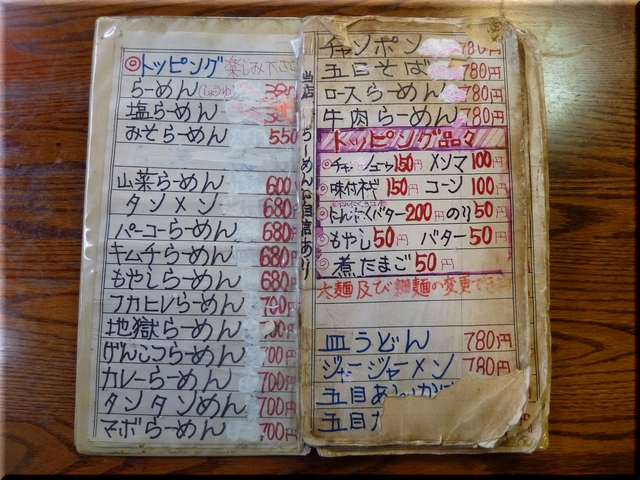 ◎トッピング 楽しみ下さい
らーめん(しょうゆ)
塩らーめん
みそらーめん 550
山菜らーめん 600
タンメン 680円
パーコーらーめん 680円
キムチらーめん 680円
もやしらーめん 680円
フカヒレらーめん 700円
地獄らーめん 700円
げんこつらーめん 700円
カレーらーめん 700円
タンタンめん 700円
マボらーめん 700円
当店 らーめんが自信あり
チャンポン 780円
五目そば 780円
ロースらーめん 780円
牛肉らーめん 780円
トッピング品々
◎チャーシュー150円 メンマ100円
◎味付ネギ 150円 コーン100円
◎にんにくバター200円 のり50円
◎もやし50円 バター50円
◎煮たまご50円
太麺及び細麺の変更でき
皿うどん 780円
ジャージャーメン 780円
五目あんかけ
五目